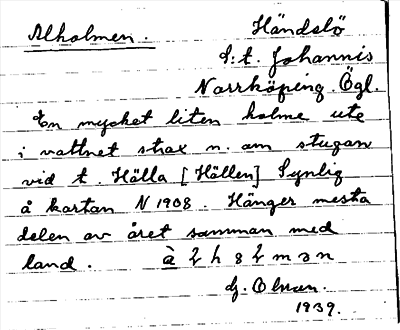 Alholmen. Händelö
S:t. Johannis
Norrköping. Ögl.
En mycket liten holme ute
i vattnet strax n. om stugan
vid t. Hälla [Hällen] Synlig
å kartan N 1908. Hänger mesta
delen av året samman med
land.
G. Olson.
1939.